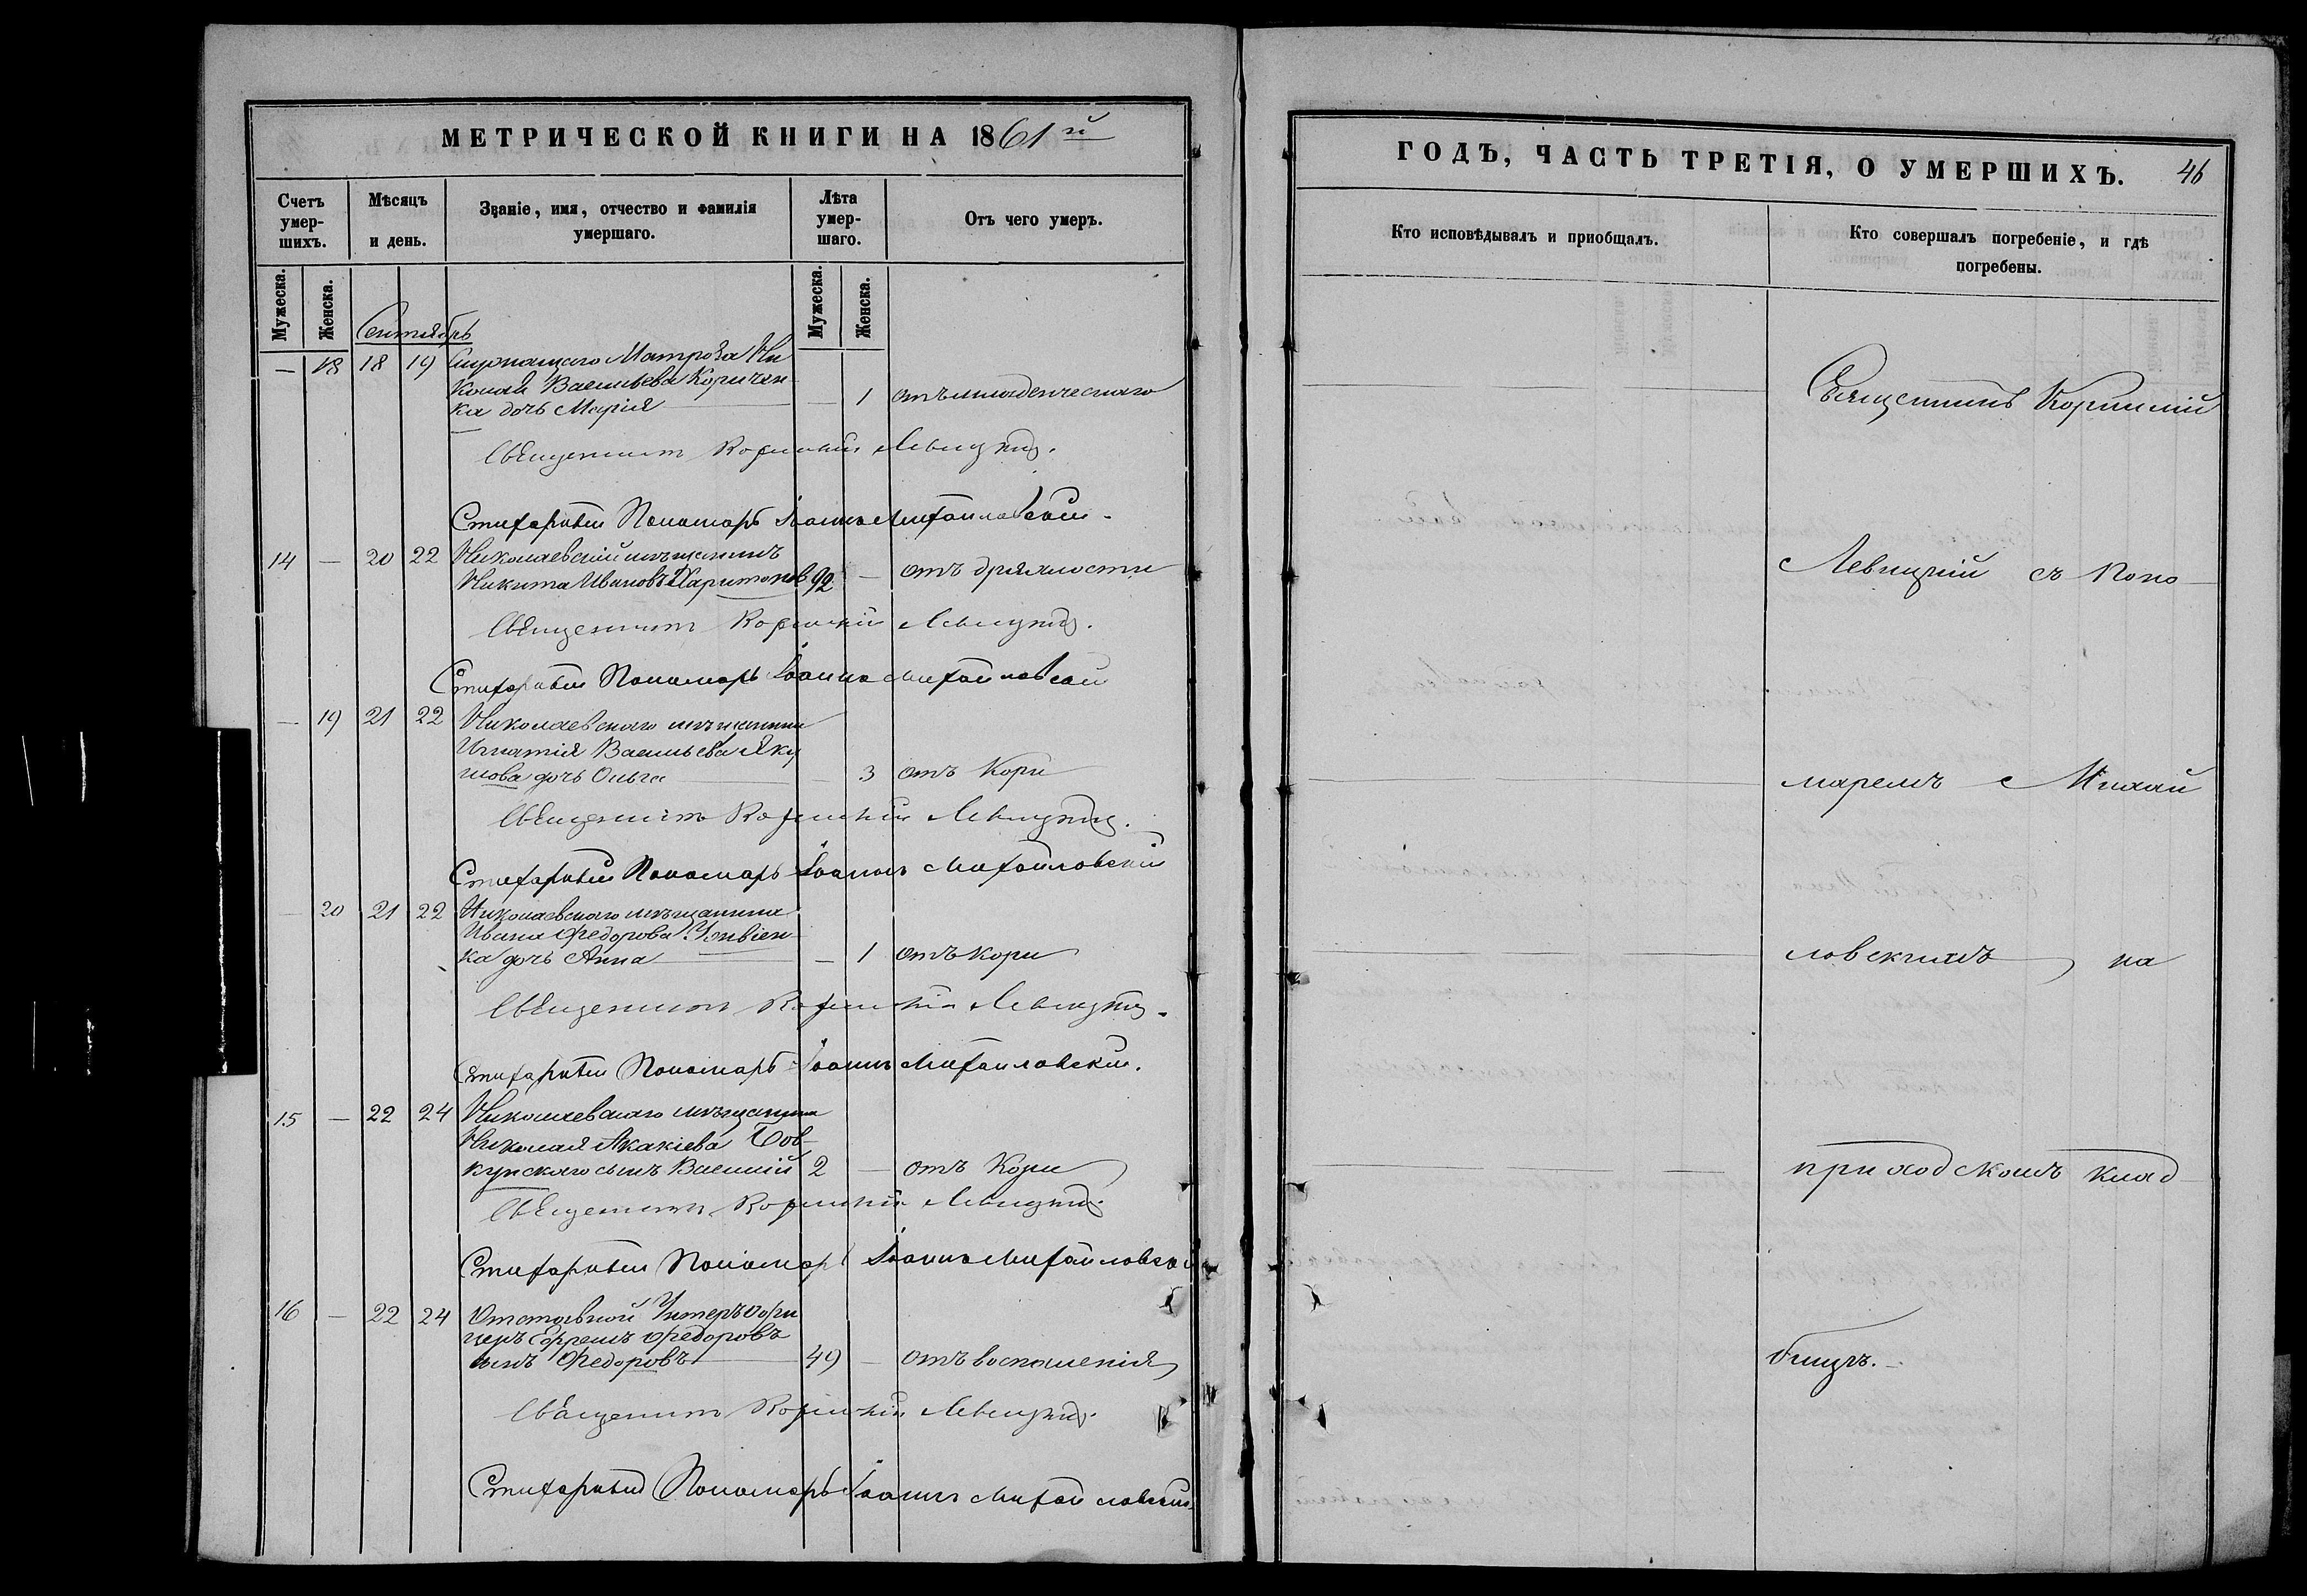 МЕТРИЧЕСКОЙ КНИГИ НА 1861й
Счетъ умер-шихъ.
Мѣсяцъ и день.
Званіе, имя, отчество и фамилія умершаго.
Лѣта умер-шаго.
Отъ чего умеръ.
Мужеска.
Женска.
Мужеска.
Женска.
Сентябрь
— 18 18 19 Матроза Ни
колая Васильева Коричен
ка дочь Марія — 1 отъ младенческаго
Священникъ Левицкій.
Стихарный Пономарь Іоаннъ Михайловскій.
14 — 20 22 Николаевскій мѣщанинъ
Никита Ивановъ Харитонов 92 — отъ дряхлости
Священникъ Левицкій.
Стихарный Пономарь Іоаннъ Михайловскій
— 19 21 22 Николаевскаго мѣщанина
Игнатія Васильева Яку
шова дочь Ольга — 3 отъ Кори
Священникъ Левицкій.
Стихарный Пономарь Іоаннъ Михайловскій
— 20 21 22 Николаевскаго мѣщанина
Ивана Федорова
ка дочь Анна — 1 отъ кори
Священникъ Левицкій.
Стихарный Пономарь Іоаннъ Михайловскій.
15 — 22 24 Николаевскаго мѣщанина
Николая Акакіева Бов
кунскаго сынъ Василій 2 — отъ Кори
Священникъ Левицкій.
Стихарный Пономарь Іоаннъ Михайловскій
16 — 22 24 Отставной Унтеръ Офи
церъ Ефремъ Федоровъ
сынъ Федоровъ 49 — отъ воспаленія
Священникъ Левицкій.
Стихарный Пономарь Іоаннъ Михайловскій.
ГОДЪ, ЧАСТЬ ТРЕТІЯ, О УМЕРШИХЪ. 46
Кто исповѣдывалъ и приобщалъ.
Кто совершалъ погребеніе, и гдѣ погребены.
Священникъ
Левицкій съ Поно
маремъ Михай
ловскимъ на
приходскомъ клад
бищѣ.